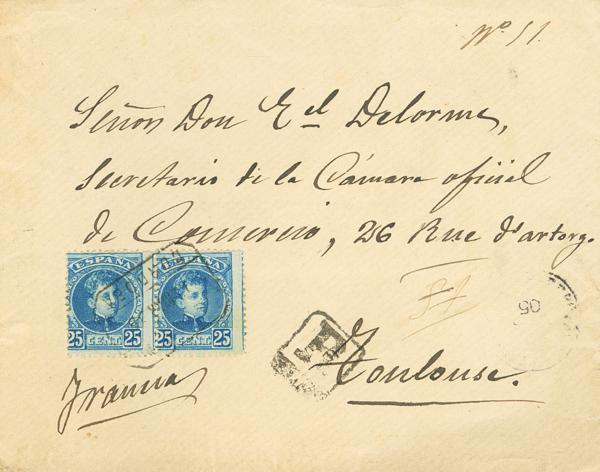 Nº 51.
Señor Don E el Delorme,
Secretario de la Cámara ofiüal
de Comercio, 26 Rue d'artorg.
Toulouse.
Francia
ESPAÑA ESPAÑA
25 CENT. 25 25 CENT. 25
05